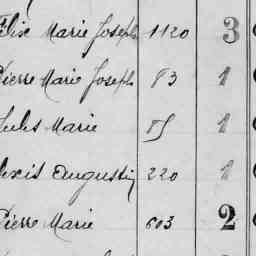 élix Marie Joseph 1120 3
Pierre Marie Joseph 83 1
Jules Marie 85 1
lexis Augustin 220 1
Pierre Marie 603 2